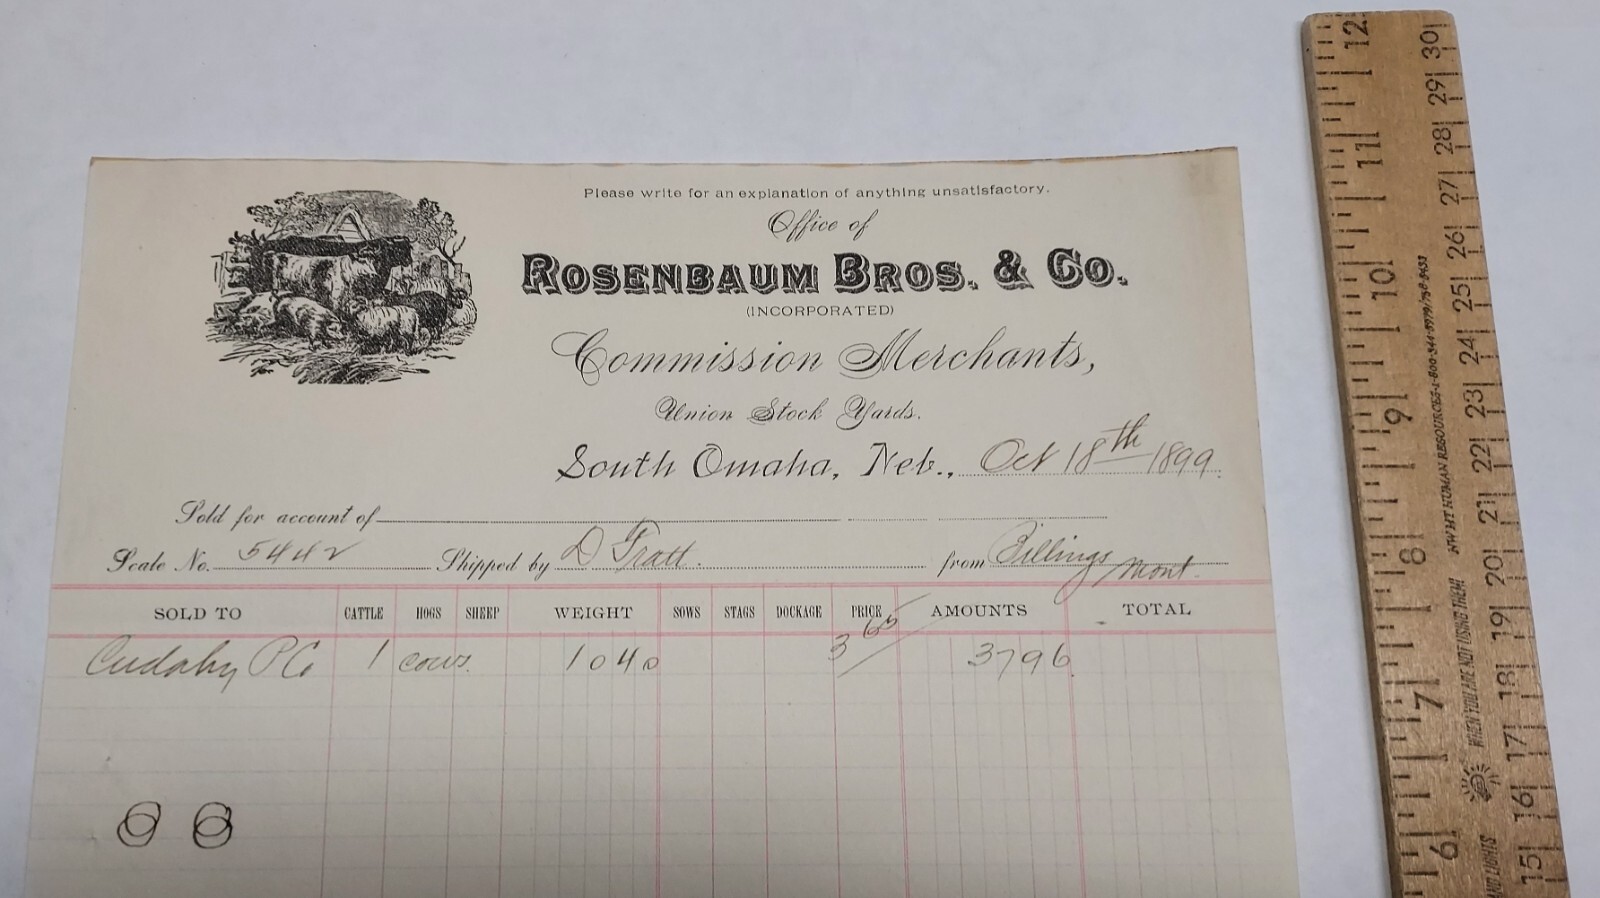 Please write for an explanation of anything unsatisfactory.
Office of
ROSENBAUM BROS. & CO.
(INCORPORATED)
Commission Merchants,
Union Stock Yards.
South Omaha, Neb., Oct 18th 1899.
Sold for account of
Scale No. 5442 Shipped by D Fratt. from Billings Mont.
SOLD TO CATTLE HOGS SHEEP WEIGHT SOWS STAGS DOCKAGE PRICE AMOUNTS TOTAL
Cudahy P Co 1 cows. 1040 3 65 3796
12 11 10 9 8 7 6
30 29 28 27 26 25 24 23 22 21 20 19 18 17 16 15
NW MT HUMAN RESOURCES-1-800-344-5979/758-5433
WHEN YOU ARE NOT USING THEM
LIGHTS